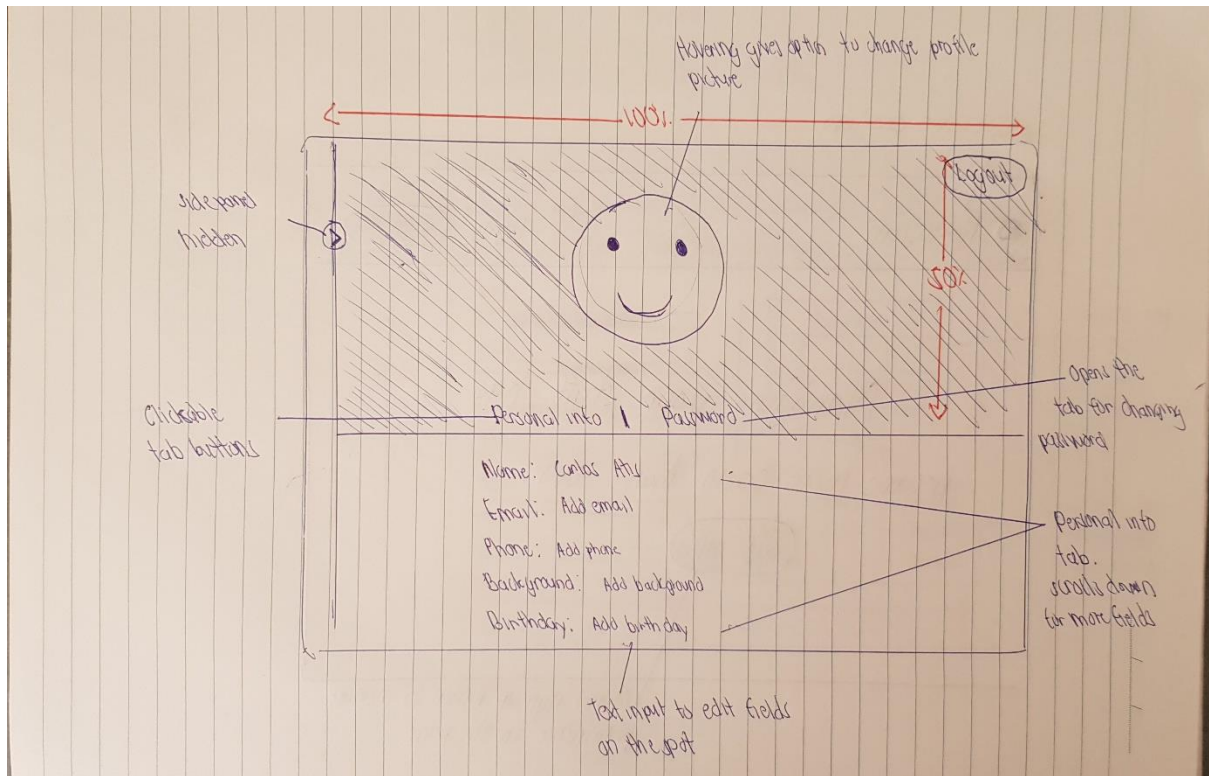 Hovering gives option to change profile
picture
100%
Logout
side panel
hidden
50%
Opens the
tab for changing
password
Clickable
tab buttons
Personal info | Password
Name: Carlos Ahs
Email: Add email
Phone: Add phone
Background: Add background
Birthday: Add birthday
Personal info
tab.
scrolls down
for more fields
Text input to edit fields
on the spot